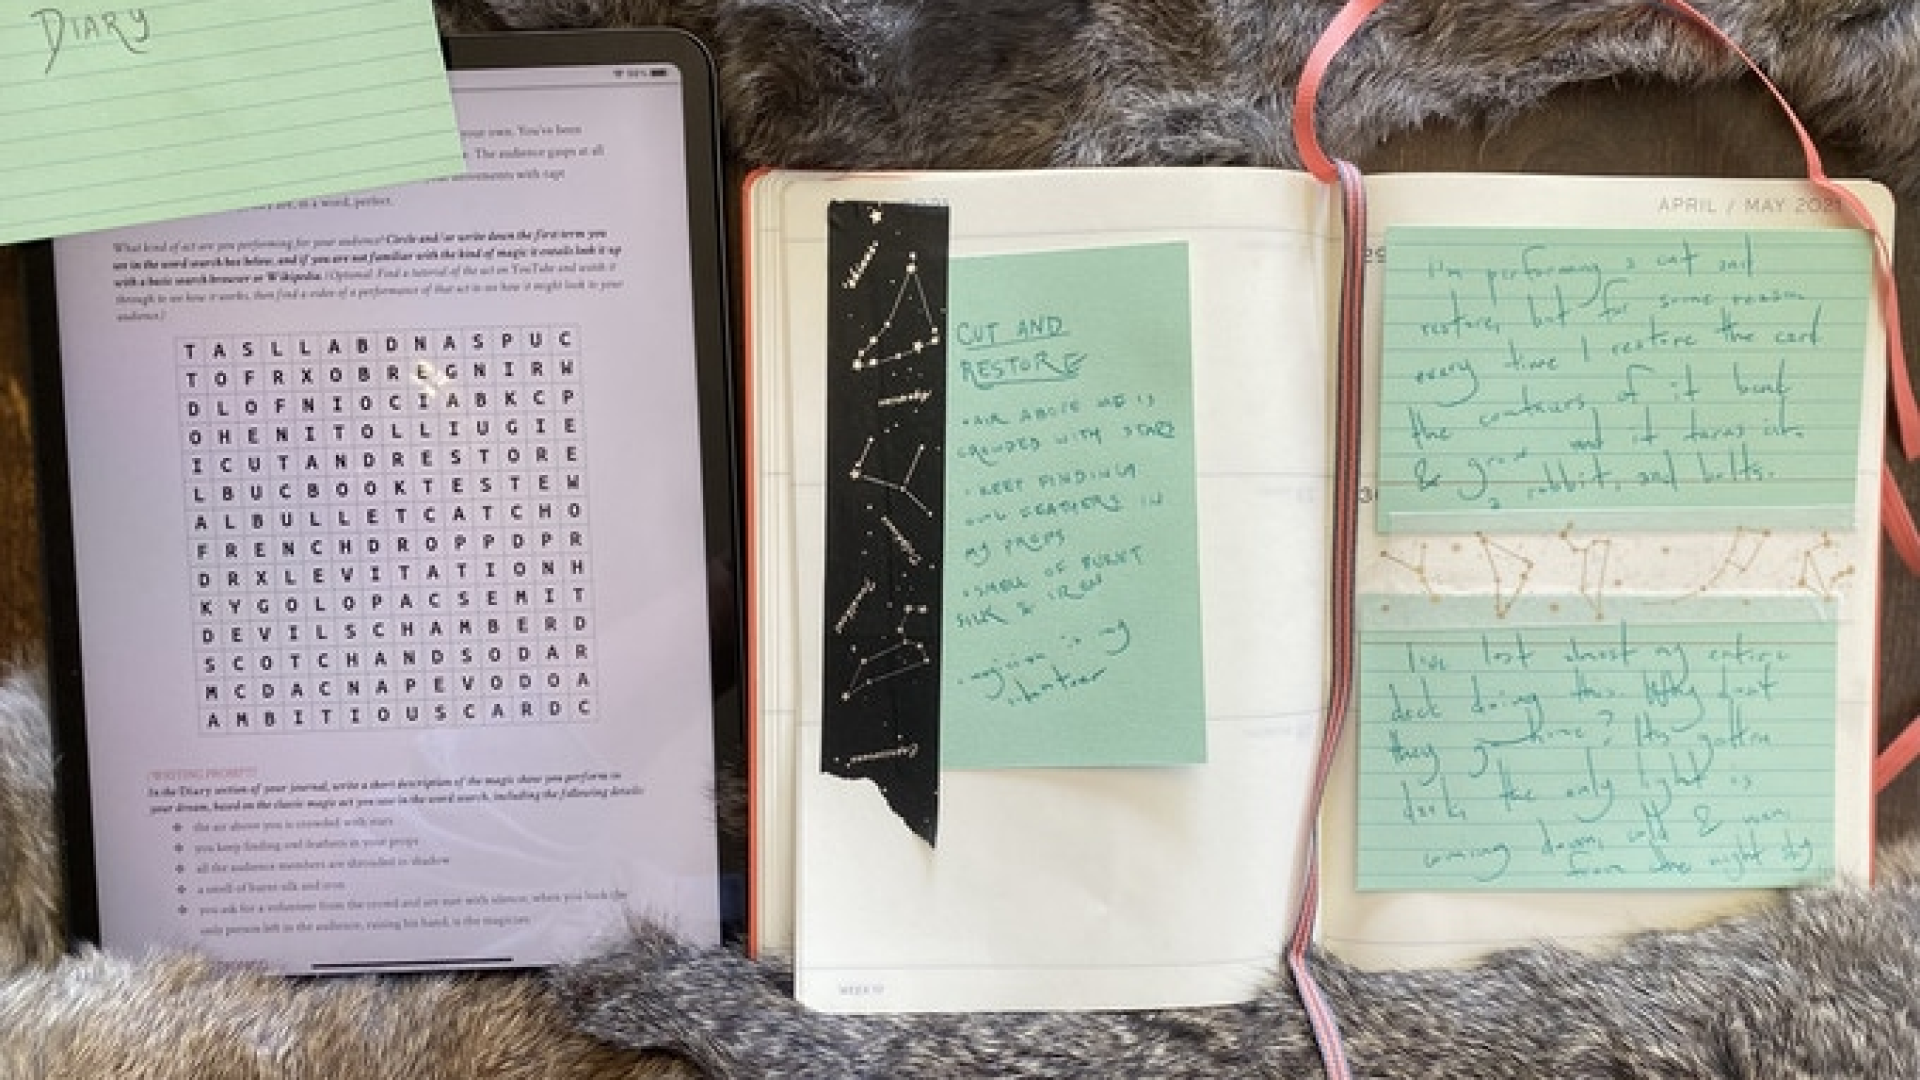 DIARY
your own. You've been
The audience gasps at all
movements with rapt
in a word, perfect.
What kind of act are you performing for your audience? Circle and/or write down the first term you
see in the word search box below, and if you are not familiar with the kind of magic it entails look it up
with a basic search browser or Wikipedia. (Optional: Find a tutorial of the act on YouTube and watch it
through to see how it works, then find a video of a performance of that act to see how it might look to your
audience.)
T A S L L A B D N A S P U C
T O F R X O B R E G N I R W
D L O F N I O C I A B K C P
O H E N I T O L L I U G I E
I C U T A N D R E S T O R E
L B U C B O O K T E S T E W
A L B U L L E T C A T C H O
F R E N C H D R O P P D P R
D R X L E V I T A T I O N H
K Y G O L O P A C S E M I T
D E V I L S C H A M B E R D
S C O T C H A N D S O D A R
M C D A C N A P E V O D O A
A M B I T I O U S C A R D C
(WRITING PROMPT)
In the Diary section of your journal, write a short description of the magic show you perform in
your dream, based on the classic magic act you saw in the word search, including the following details:
the air above you is crowded with stars
you keep finding owl feathers in your props
all the audience members are shrouded in shadow
a smell of burnt silk and iron
you ask for a volunteer from the crowd and are met with silence; when you look the
only person left in the audience, raising his hand, is the magician
CUT AND
RESTORE
• AIR ABOVE ME IS
CROWDED WITH STARS
• KEEP FINDING
OWL FEATHERS IN
MY PROPS
• SMELL OF BURNT
SILK & IRON
• magician is my
volunteer
WEEK
APRIL / MAY 2021
29
I'm performing a cut and
restore, but for some reason
every time I restore the card
the contours of it bend
& grow and it turns into
a rabbit, and bolts.
30
I've lost almost my entire
deck doing this. Why don't
they go home? It's gotten
dark, the only light is
coming down, cold & wan,
from the night sky